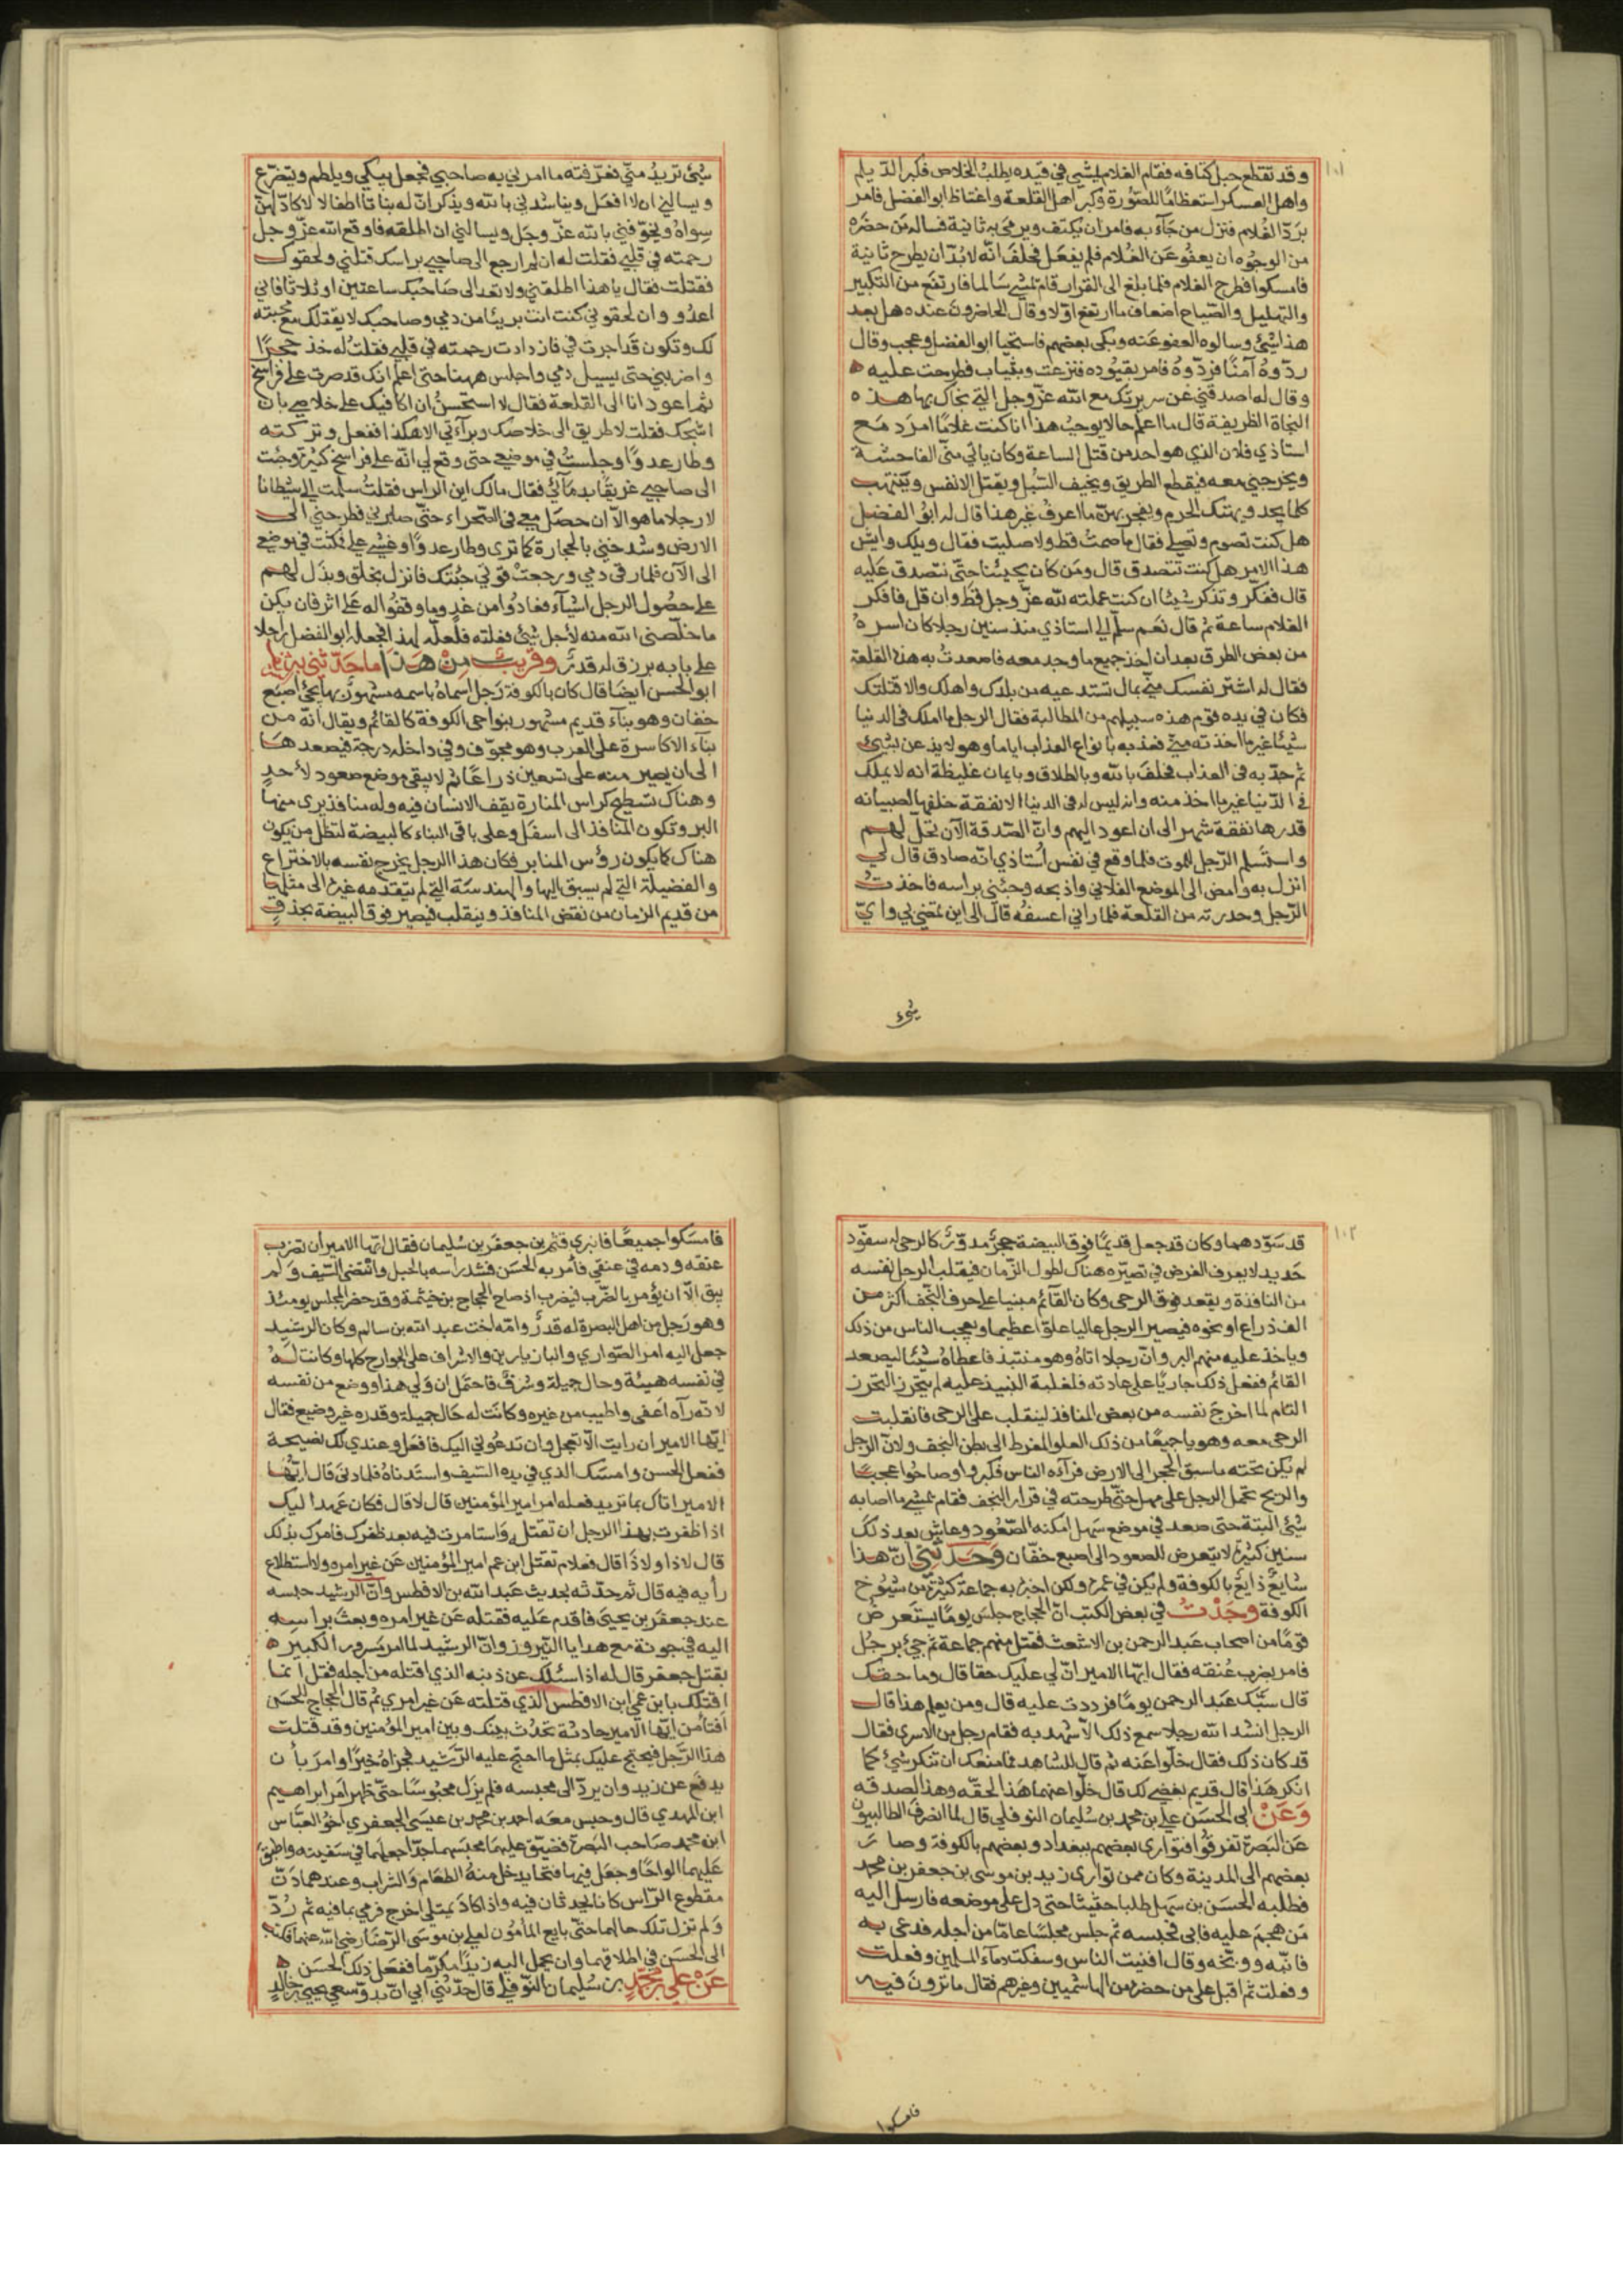 ١٠١
وقد تقطع حبل كتافه فقام الغلام يمشي في قيده يطلب الخلاص فكبر الديلم
واهل العسكر استعظاما للصورة وكبر اهل القلعة واغتاظ ابو الفضل فامر
برد الغلام فنزل من جآء به فامر ان يكتف ويرمى به ثانية فساله من حضره
من الوجوه ان يعفو عن الغلام فلم يفعل فحلف انه لا بد ان يطرح ثانية
فامسكوا فطرح الغلام فلما بلغ الى القرار قام يمشي سالما فارتفع من التكبير
والتهليل والصياح اضعاف ما ارتفع اولا وقال الحاضرون عنده هل بعد
هذا شيئ وسالوه العفو عنه وبكى بعضهم فاستحيا ابو الفضل وعجب وقال
ردوه آمنا فردوه فامر بقيوده فنزعت وبثياب فطرحت عليه
وقال له اصدقني عن سريرتك مع الله عز وجل التي نجاك بها هذه
النجاة الظريفة قال ما اعلم حالا يوجب هذا انا كنت غلاما امرد مع
استاذي فلان الذي هو احد من قتل الساعة وكان ياتي مني الفاحشة
ويخرجني معه فيقطع الطريق ويخيف السبل ويقتل الانفس وينتهب
كلما يجد ويهتك الحرم ويفجر بهن ما اعرف غير هذا قال له ابو الفضل
هل كنت تصوم وتصلي فقال ما صمت قط ولا صليت فقال ويلك وايش
هذا الامر هل كنت تتصدق قال ومن كان يجيئنا حتى نتصدق عليه
قال ففكر وتذكر شيئا ان كنت عملته لله عز وجل قط وان قل فافكر
الغلام ساعة ثم قال نعم سلم الي استاذي منذ سنين رجلا كان اسره
من بعض الطرق بعد ان اخذ جميع ما وجد معه فاصعدت به هذه القلعة
فقال له اشتر نفسك مني بمال تستدعيه من بلدك واهلك والا قتلتك
فقال الرجل ما املك في الدنيا
شيئا غير ما اخذته مني فعذبه بانواع العذاب اياما وهو لا يذعن بشيئ
ثم جد به في العذاب فحلف بالله وبالطلاق وبايمان غليظة انه لا يملك
في الدنيا غير ما اخذ منه وانه ليس له في الدنيا الا نفقة خلفها لصبيانه
قدرها نفقة شهر الى ان اعود اليهم وان الصدقة الآن تحل لهم
واستسلم الرجل للموت فلما وقع في نفس استاذي انه صادق قال لي
انزل به وامض الى الموضع الفلاني واذبحه وجئني براسه فاخذت
الرجل وحدرته من القلعة فلما راني اعسفه قال الى اين تمضي بي واي
شيء
شيئ تريد مني فعرفته ما امرني به صاحبي فجعل يبكي ويلطم ويتضرع
ويسالني ان لا افعل ويناشدني بالله ويذكر ان له بناتا اطفالا لا كاد لهن
سواه ويخوفني بالله عز وجل ويسالني ان اطلقه فاوقع الله عز وجل
رحمته في قلبي فقلت له ان لم ارجع الى صاحبي براسك قتلني ولحقوك
فقتلت فقال يا هذا اطلقني ولا تعد الى صاحبك ساعتين او ثلاثا فاني
اعدو وان لحقوني كنت انت بريئا من دمي وصاحبك لا يقتلك مع محبته
لك وتكون قد اجرت في فازدادت رحمته في قلبي فقلت له خذ حجرا
واضربني حتى يسيل دمي واجلس ههنا حتى اعلم انك قد صرت على فراسخ
ثم اعود انا الى القلعة فقال لا استحسن ان اكافيك على خلاصي بان
اشجك فقلت لا طريق الى خلاصك وبرآءتي الا هكذا ففعل وتركته
وطار عدوا وجلست في موضعي حتى وقع لي انه على فراسخ كثيرة وجئت
الى صاحبي غريقا بدمآئي فقال مالك اين الراس فقلت سلمت الي شيطانا
لا رجلا ما هو الا ان حصل معي في الصحراء حتى صابرني فطرحني الى
الارض وشدخني بالحجارة كما ترى وطار عدوا وغشي علي فمكثت في موضعي
الى الآن فلما رقى دمي ورجعت قوتي جئتك فانزل بخلق وبذل لهم
على حصول الرجل اشيآء فعادوا من غد وما وقفوا له على اثر فان يكن
ما خلصني الله منه لاجل شيئ فعلته فلعله لهذا فجعله ابو الفضل راجلا
على بابه برزق له قدر وقريب من هذا ما حدثني به
ابو الحسن ايضا قال كان بالكوفة رجل اسماه باسمه مشهور بها يجئ اصبع
خفان وهو بنآء قديم مشهور بنواحي الكوفة كالقائم ويقال انه من
بنآء الاكاسرة على العرب وهو مجوف وفي داخله درجة فيصعد هنا
الى ان يصير منه على تسعين ذراعا ثم لا يبقى موضع صعود لأحد
وهناك تسطيح كراس المنارة يقف الانسان فيه وله منافذ يرى منها
البر وتكون المنافذ الى اسفل وعلى باقي البناء كالبيضة لتظل من يكون
هناك كما يكون رؤس المنابر فكان هذا الرجل يخرج نفسه بالاختراع
والفضيلة التي لم يسبق اليها والهندسة التي لم يتقدمه غيره الى مثلها
من قديم الزمان من نقض المنافذ وينقلب فيصير فوق البيضة بحذق
١٠٢
قد سود هما وكان قد جعل قديما فوق البيضة حجر مدور كالرحى له سفود
حديد لا يعرف الغرض في تصيره هناك لطول الزمان فيقلب الرجل نفسه
من النافذة ويقعد فوق الرحى وكان القائم مبنيا على حرف النجف اكثر من
الف ذراع او نحوه فيصير الرجل عاليا علوا عظيما ويعجب الناس من ذلك
وياخذ عليه منهم البر وان رجلا اتاه وهو منتبذ فاعطاه شيئا ليصعد
القائم ففعل ذلك جاريا على عادته فلغلبة النبيذ عليه لم يتحرز التحرز
التام لما اخرج نفسه من بعض المنافذ لينقلب على الرحى فانقلبت
الرحى معه وهويا جميعا من ذلك العلو المفرط الى بطن النجف ولان الرجل
لم يكن تحته ما سبق الحجر الى الارض فرآءه الناس فكبروا وصاحوا عجبا
والريح تحمل الرجل على مهل حتى طرحته في قرار النجف فقام يمشي ما اصابه
شيئ البتة حتى صعد في موضع سهل امكنه الصعود وعاش بعد ذلك
سنين كثيرة لا يتعرض للصعود الى اصبع خفان وحدثني ان هذا
شايع ذايع بالكوفة ولم يكن في عمره ولكن اخبره به جماعة كثيرة من شيوخ
الكوفة وجدت في بعض الكتب ان الحجاج جلس يوما يستعرض
قوما من اصحاب عبد الرحمن بن الاشعث فقتل منهم جماعة ثم جيئ برجل
فامر بضرب عنقه فقال ايها الامير ان لي عليك حقا قال وما حقك
قال سبك عبد الرحمن يوما فرددت عليه قال ومن يعلم هذا قال
الرجل انشد الله رجلا سمع ذلك الا شهد به فقام رجل من الاسرى فقال
قد كان ذلك فقال خلوا عنه ثم قال للشاهد فما منعك ان تنكر شيئ كما
انكر هذا قال قديم بغضي لك قال خلوا عنهما هذا لحقه وهذا لصدقه
وعن ابي الحسن علي بن محمد بن سليمان النوفلي قال لما انصرف الطالبيون
عن البصرة تفرقوا فتوارى بعضهم ببغداد وبعضهم بالكوفة وصار
بعضهم الى المدينة وكان ممن توارى زيد بن موسى بن جعفر بن محمد
فطلبه الحسن بن سهل طلبا حثيثا حتى دل على موضعه فارسل اليه
من هجم عليه فاتى فحبسه ثم جلس مجلسا عاما من اجله فدعي به
فانبه ووبخه وقال افنيت الناس وسفكت دمآء المسلمين وفعلت
وفعلت ثم اقبل على من حضر من الهاشميين وغيرهم فقال ما ترون فيه
فامسكوا
فامسكوا جميعا فانبرى قثم بن جعفر بن سليمان فقال ايها الامير ان تضرب
عنقه ودمه في عنقي فأمر به الحسن فشد راسه بالحبل وانتضى السيف ولم
يبق الا ان يؤمر بالضرب فيضرب اذ صاح الحجاج بن خيثمة وقد حضر المجلس يومئذ
وهو رجل من اهل البصرة له قدر وامه اخت عبد الله بن سالم وكان الرشيد
جعل اليه امر الصواري والبازيارين والاشراف على الجوارح كلها وكانت له
في نفسه هيئة وحال جميلة وشرف فاحتمل ان ولي هذا ووضع من نفسه
لانه رآه اعفى واطيب من غيره وكانت له حال جميلة وقدره غير وضيع فقال
ايها الامير ان رايت الا تعجل وان تدعوني اليك فافعل وعندي لك نصيحة
ففعل الحسن وامسك الذي في يده السيف واستدناه فلما دنى قال ايها
الامير اتاك بما تريد فعله امر امير المؤمنين قال لا قال فكان عهد اليك
اذا ظفرت بهذا الرجل ان تقتله واستامرت فيه بعد ظفرك فأمرك بذلك
قال لا ذا ولا ذا قال فعلام تقتل ابن عم امير المؤمنين عن غير امره ولا استطلاع
رأيه فيه قال ثم حدثه بحديث عبد الله بن الافطس وان الرشيد حبسه
عند جعفر بن يحيى فاقدم عليه فقتله عن غير امره وبعث براسه
اليه في جونة مع هدايا النيروز وان الرشيد لما امر مسرور الكبير
بقتل جعفر قال له اذا سئلك عن ذنبه الذي اقتله من اجله فقل انما
اقتلك بابن عمي ابن الافطس الذي قتلته عن غير امري ثم قال الحجاج للحسن
افتأمن ايها الامير حادثة تحدث بينك وبين امير المؤمنين وقد قتلت
هذا الرجل فيحتج عليك بمثل ما احتج عليه الرشيد فجزاه خيرا وامر بأن
يدفع عن زيد وان يرد الى محبسه فلم يزل محبوسا حتى ظهر امر ابراهيم
ابن المهدي قال وحبس معه احمد بن محمد بن عيسى الجعفري اخو العباس
ابن محمد صاحب البصرة فضيق عليهما محبسهما جدا جعلهما في سفينه واطبق
عليهما الواحا وجعل فيها فتحا يدخل منه الطعام والشراب وعندهما دن
مقطوع الراس كانا يحدثان فيه واذا كاد يمتلي اخرج فرمي بما فيه ثم رد
ولم تزل تلك حالهما حتى بايع المأمون لعلي بن موسى الرضا رضي الله عنهما فكتب
الى الحسن في اطلاقهما وان يحمل اليه زيدا مكرما ففعل ذلك الحسن
عن علي بن محمد بن سليمان النوفلي قال حدثني ابي ان بدو سعي يحيى بن خالد